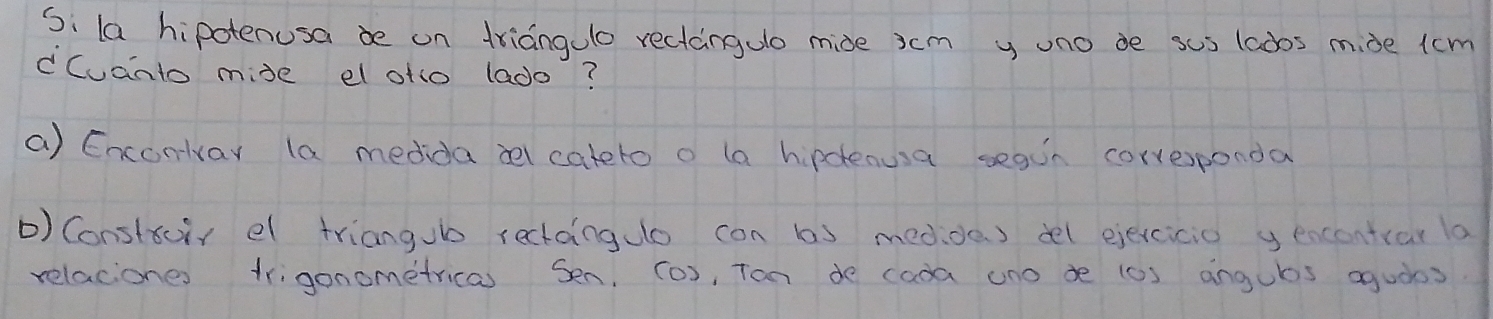 Si la hipotenusa de un triángulo rectángulo mide 3cm y uno de sus lados mide 1cm
¿Cuánto mide el otro lado?
a) Encontrar la medida del cateto o la hipotenusa según corresponda
b) Construir el triangulo rectángulo con las medidas del ejercicio y encontrar la
relaciones trigonométricas Sen. Cos, Tan de cada uno de los ángulos agudos.